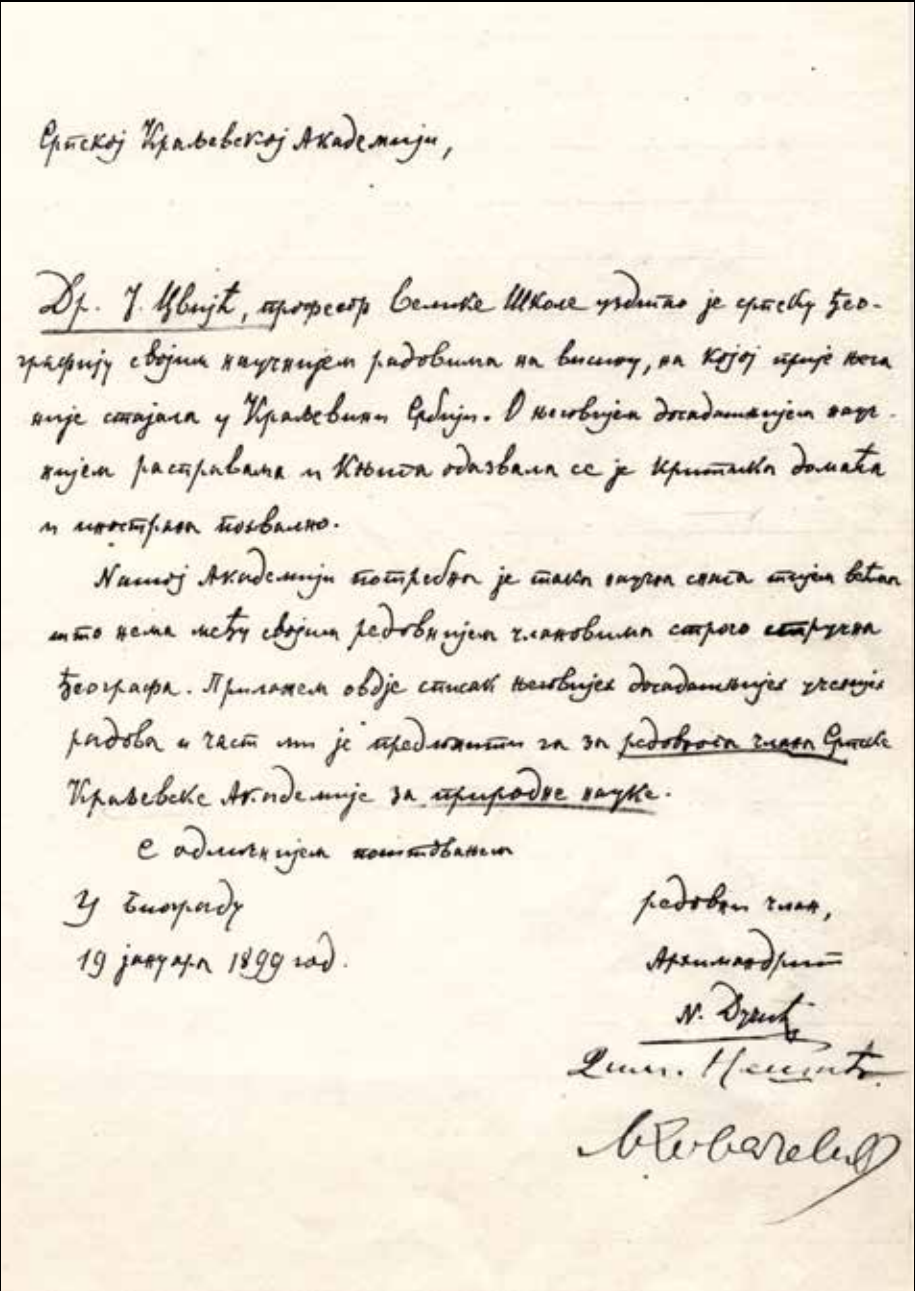 Српској Краљевској Академији,
Др. Ј. Цвијћ, професор Велике Школе уздигао је српску ђео-
графију својим научнијем радовима на висину, на којој прије њега
није стајала у Краљевини Србији. О његовијем досадашњијем науч-
нијем расправама и књига одазвала се је критика домаћа
и инострана похвално.
Нашој Академији потребна је така научна снага тијем већма
што нема међу својим редовнијем члановима строго стручна
ђеографа. Прилажем овдје списак његовијех досадашњијех ученијех
радова и част ми је предложити га за редовнога члана Српске
Краљевске Академије за природне науке.
С одличнијем поштовањем
У Биограду
19 јануара 1899 год.
редовни члан,
Архимандрит
Н. Дучић
Дим. Нешић
Љ Ковачевић